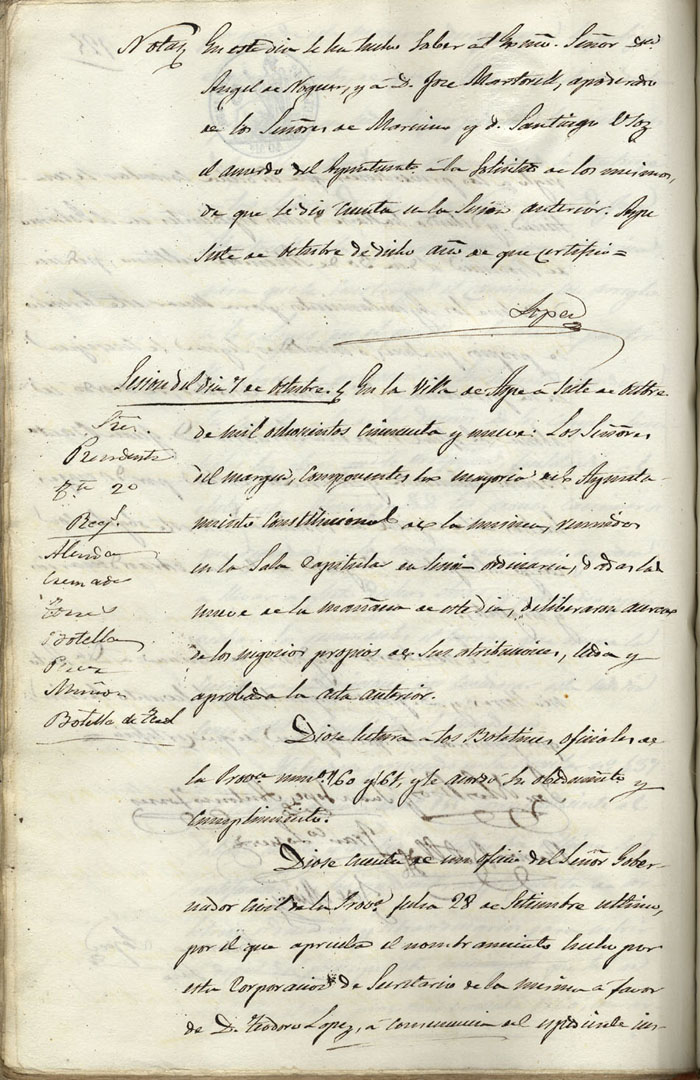 Nota En este dia se ha hecho saber al Exmo. Señor Dn.
Angel de Noguer, y a D. Jose Martorell, apoderado
de los Señores de y D. Santiago
el acuerdo del Ayuntamto. a la solicitud de los mismos,
de que se dio cuenta en la Sesion anterior. Aspe
siete de octubre de dicho año de que certifico =
Lopez
Sesion del dia 7 de octubre. En la Villa de Aspe a siete de octbre.
de mil ochocientos cincuenta y nueve: Los Señores
del margen, componentes la mayoria del Ayunta-
miento Constitucional de la misma, reunidos
en la Sala Capitular en Sesion ordinaria, dadas las
nueve de la mañana de este dia, deliberaron acerca
de los negocios propios de sus atribuciones, leida y
aprobada la acta anterior.
Sres.
Presidente
Tte. 2o
Reg.s
Almodo
Cremades
Botella
Perez
Miñon
Botella de
Diose lectura a los Boletines oficiales de
la Prova. numos. 160 y 161, y se acordo su obedecimto. y
cumplimiento.
Diose cuenta de un oficio del Señor Gober-
nador Civil de la Prova. fecha 28 de Setiembre ultimo,
por el que aprueba el nombramiento hecho por
esta Corporacion de Secretario de la misma a favor
de D. Teodoro Lopez, a consecuencia del espediente ins-